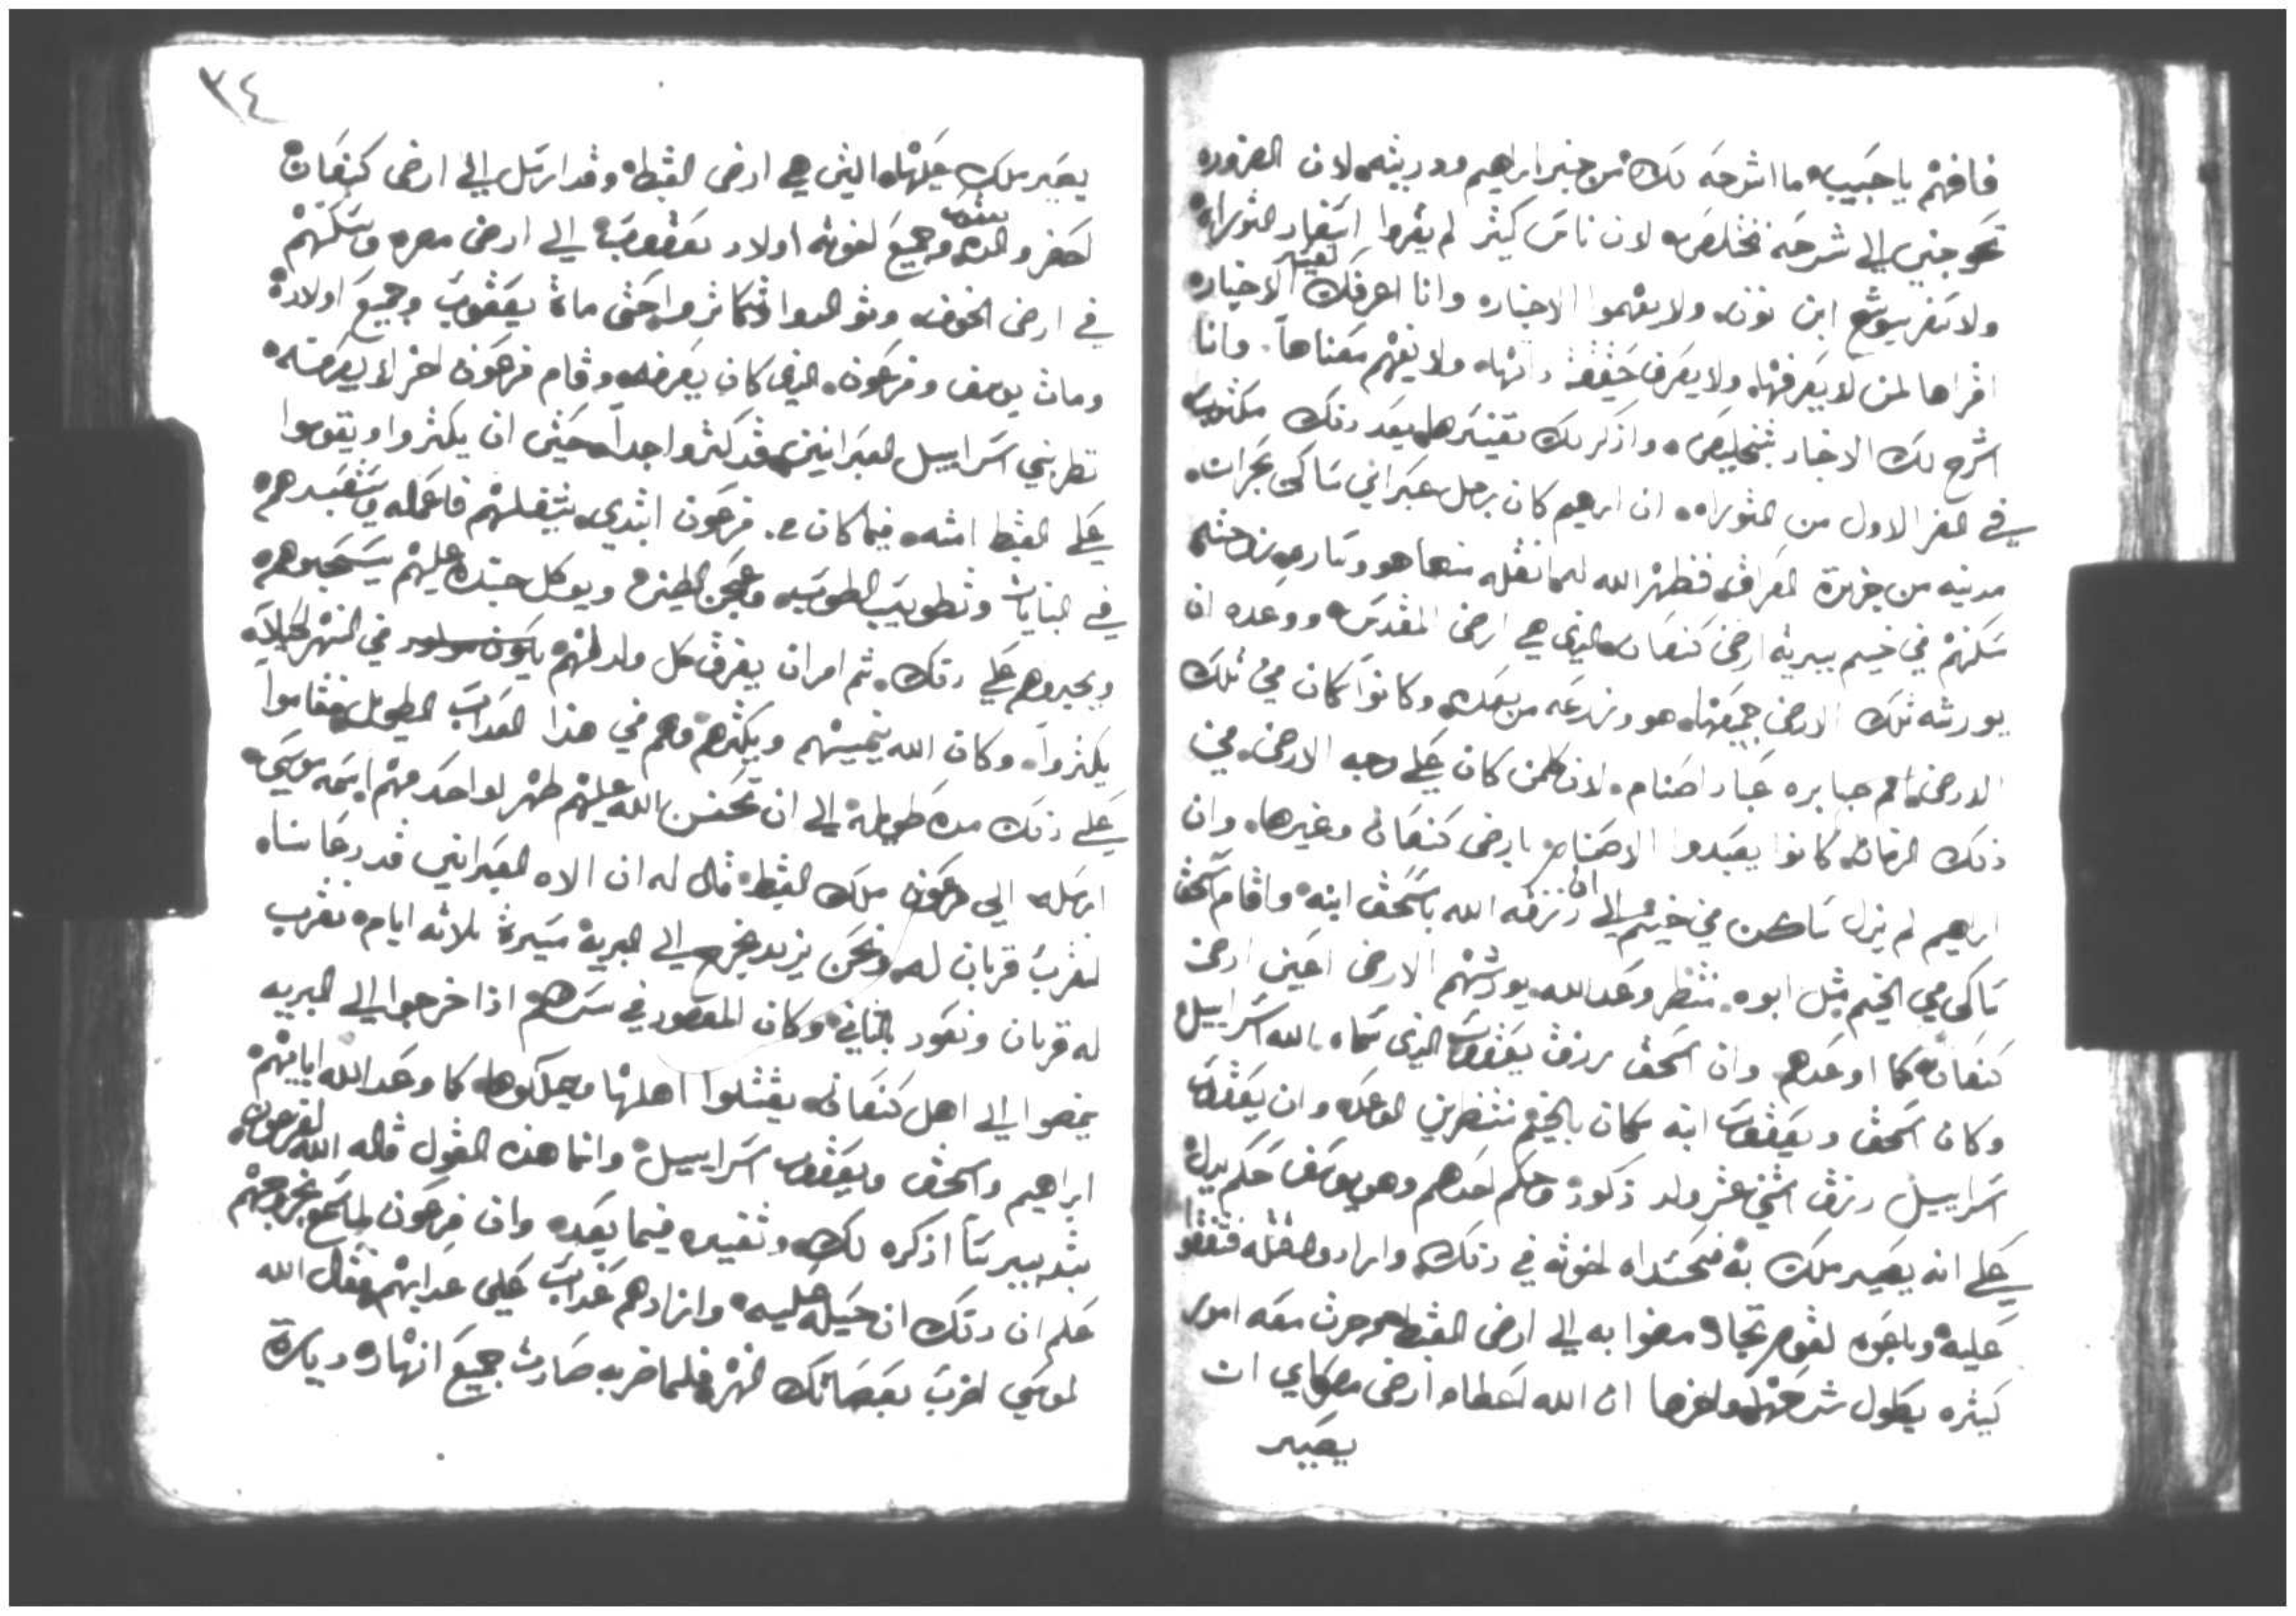 فافهم يا حبيب ما اشرحه لك من خبر ابراهيم ودريته لان الضروره
تحوجني الي شرحه مختلص لان ناس كتير لم يقروا اسفار التوراه
ولا سفر يشوع ابن نون ولا يفهموا الاخبار وانا اعرفك تفسير الاخبار
اقراها لمن لا يعرفها ولا يعرف حقيقة ولا يفهم معناها وانا
اشرح لك الاخبار بتخليص واذكر لك تفسيرها بعد دلك مكتوب
في السفر الاول من التوراه ان ابرهيم كان رجل عبراني ساكن بحران
مدينه من جزيرة العراق فظهر الله له انقله منها هو وساره زوجته
سكنهم في خيم ببرية ارض كنعان الدي هي ارض المقدس ووعده ان
يورثه تلك الارض جميعها هو وزرعه من بعده وكانوا سكان في تلك
الارض امم جبابره عباد اصنام لان كلمن كان علي وجه الارض في
ذلك الزمان كانوا يعبدوا الاصنام بارض كنعان وغيرها وان
ابراهيم لم يزل ساكن في خيم الي ان رزقه الله باسحق ابنه واقام اسحق
ساكن في الخيم مثل ابوه منتظر وعد الله يورثهم الارض اعين ارض
كنعان كما اوعدهم وان اسحق رزق يعقوب الدي سماه الله اسراييل
وكان اسحق ويعقوب ابنه سكان بالخيم منتظرين الوعد وان يعقوب
اسراييل رزق اتني عشر ولد ذكور وحلم احدهم وهو يوسف حلم يدل
علي انه يصير ملك فحسدوه اخوته في دلك وارادوا قتله
عليه وباعوه لقوم تجار مضوا به الي ارض القبط وجرت معه امور
كتيره يطول شرحها واخرها ان الله اعطاه ارض مصر اي ان
يصير
٣٤
يصير ملك عليها التي هي ارض القبط وقد ارسل الي ارض كنعان
احضر والده يعقوب وجميع اخوته اولاد يعقوب الي ارض مصر وسكنهم
في ارض الخوف وتوالدوا وتكاثروا حتي مات يعقوب وجميع اولاده
ومات يوسف وفرعون الدي كان يعرفه وقام فرعون اخر لا يعرفه
نظر بني اسراييل العبرانيين قد كثروا جدا خشي ان يكثروا ويقوموا
علي القبط امته فيما كان من فرعون ابتدي يثقلهم فاعمله ويستعبدهم
في البنايات وتطويب الطوب وعجن الطين ويوكل جنده عليهم يسخروهم
ويجبروهم علي دلك ثم امر ان يغرق كل ولد لهم يكون مولود في النهر لكيلا
يكثروا وكان الله ينميهم ويكثرهم وهم في هذا العداب الطويل فقاموا
علي ذلك مده طويله الي ان تحنن الله عليهم ظهر لواحد منهم اسمه موسي
ارسله الي فرعون ملك القبط قال له ان الاه العبرانيين قد دعانا
لنقرب قربان له ونحن نريد نخرج الي البرية مسيرة تلاتة ايام نقرب
له قربان ونعود بالتاني وكان المقصود في سرهم اذا خرجوا الي البريه
يمضوا الي اهل كنعان يقتلوا اهلها ويملكوها كما وعد الله اباييهم
ابراهيم واسحق ويعقوب اسراييل وانما هذه القول قاله الله لفرعون
بتدبير سا اذكره لك وتفسيره فيما بعده وان فرعون لما سمع بخروجهم
علم ان دلك ان حيله عليه وازادهم عذاب علي عدابهم فقال الله
لموسي اضرب بعصاتك النهر فلما ضربه صارت جميع انهاره وبياره